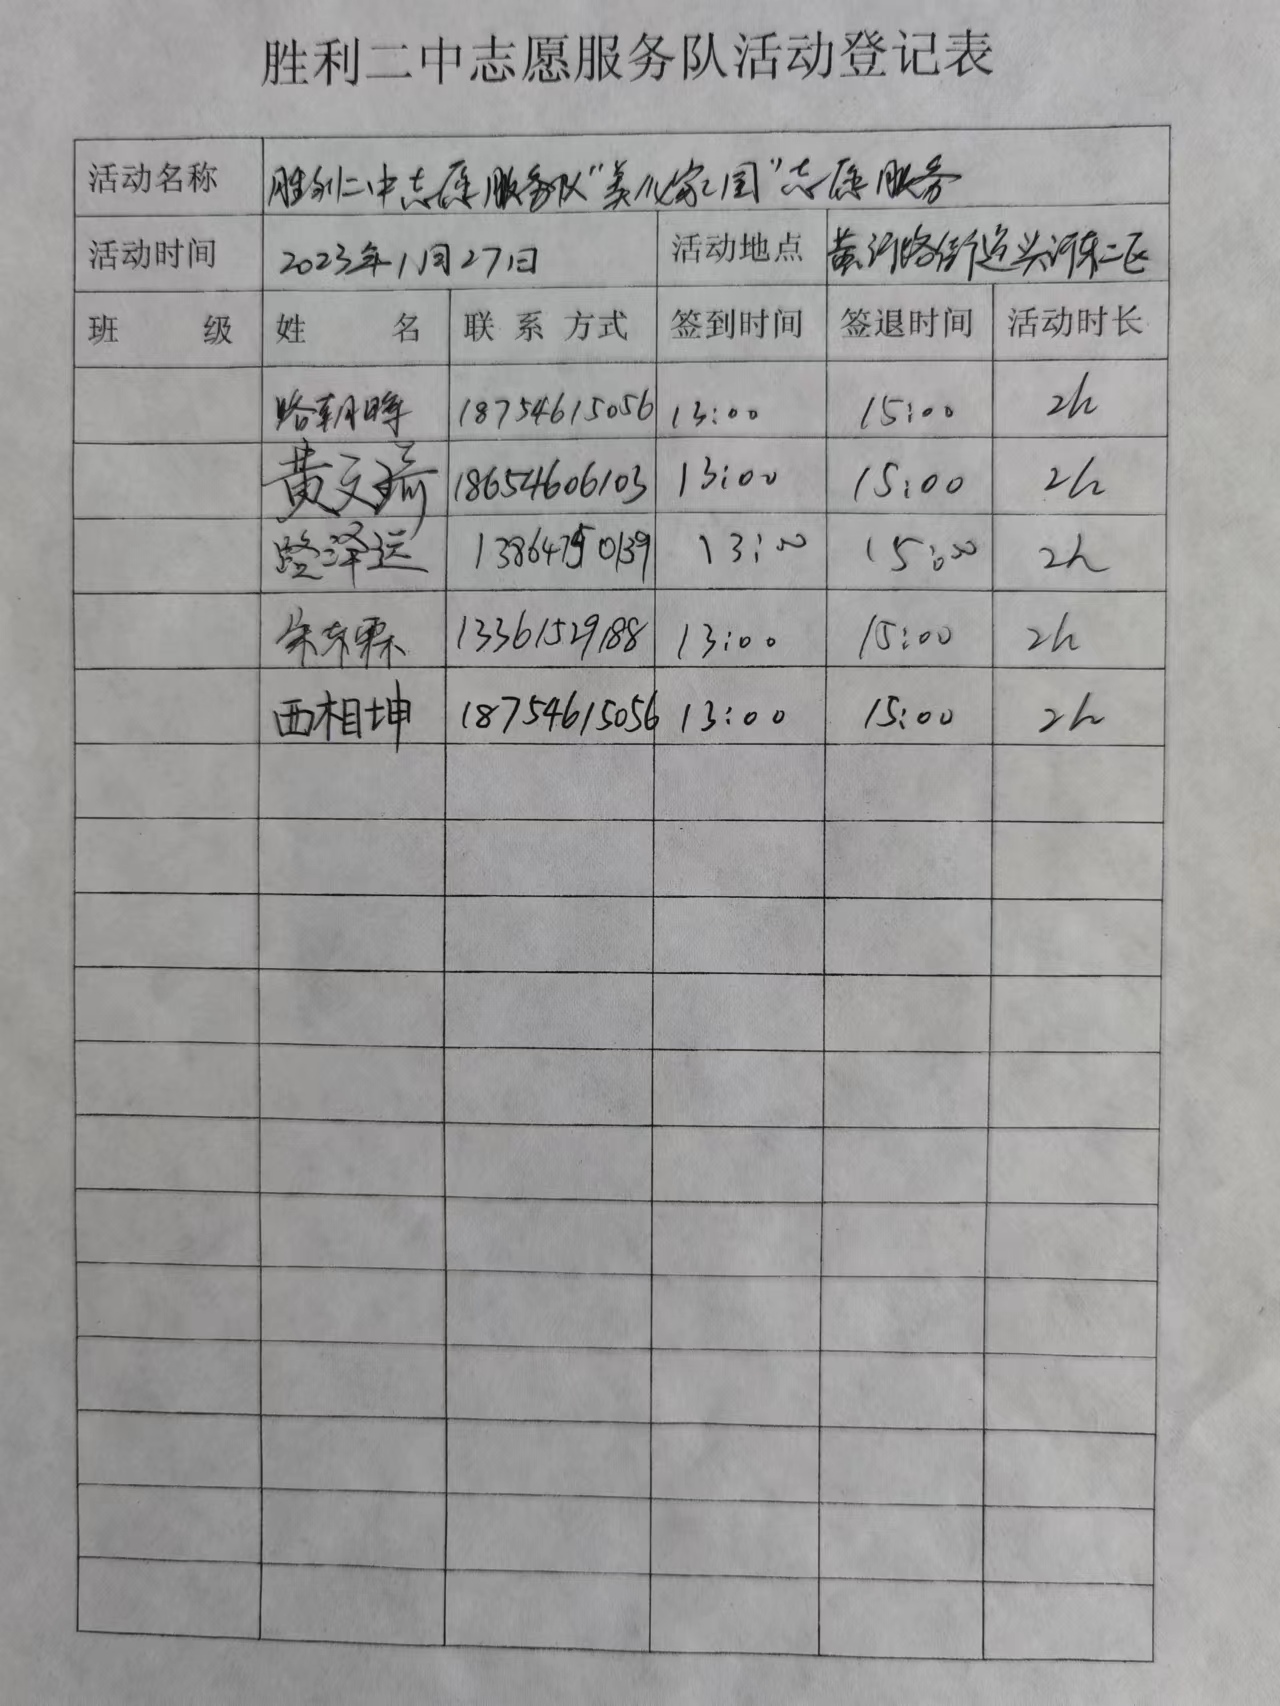 胜利二中志愿服务队活动登记表
活动名称 胜利二中志愿服务队“美化家园”志愿服务
活动时间 2023年1月27日 活动地点 黄河路街道兴河东二区
班 级 姓 名 联 系 方式 签到时间 签退时间 活动时长
路朝晖 18754615056 13:00 15:00 2h
黄文琦 18654606103 13:00 15:00 2h
泽运 13:00 15:00 2h
13361529188 13:00 15:00 2h
西相坤 18754615056 13:00 15:00 2h